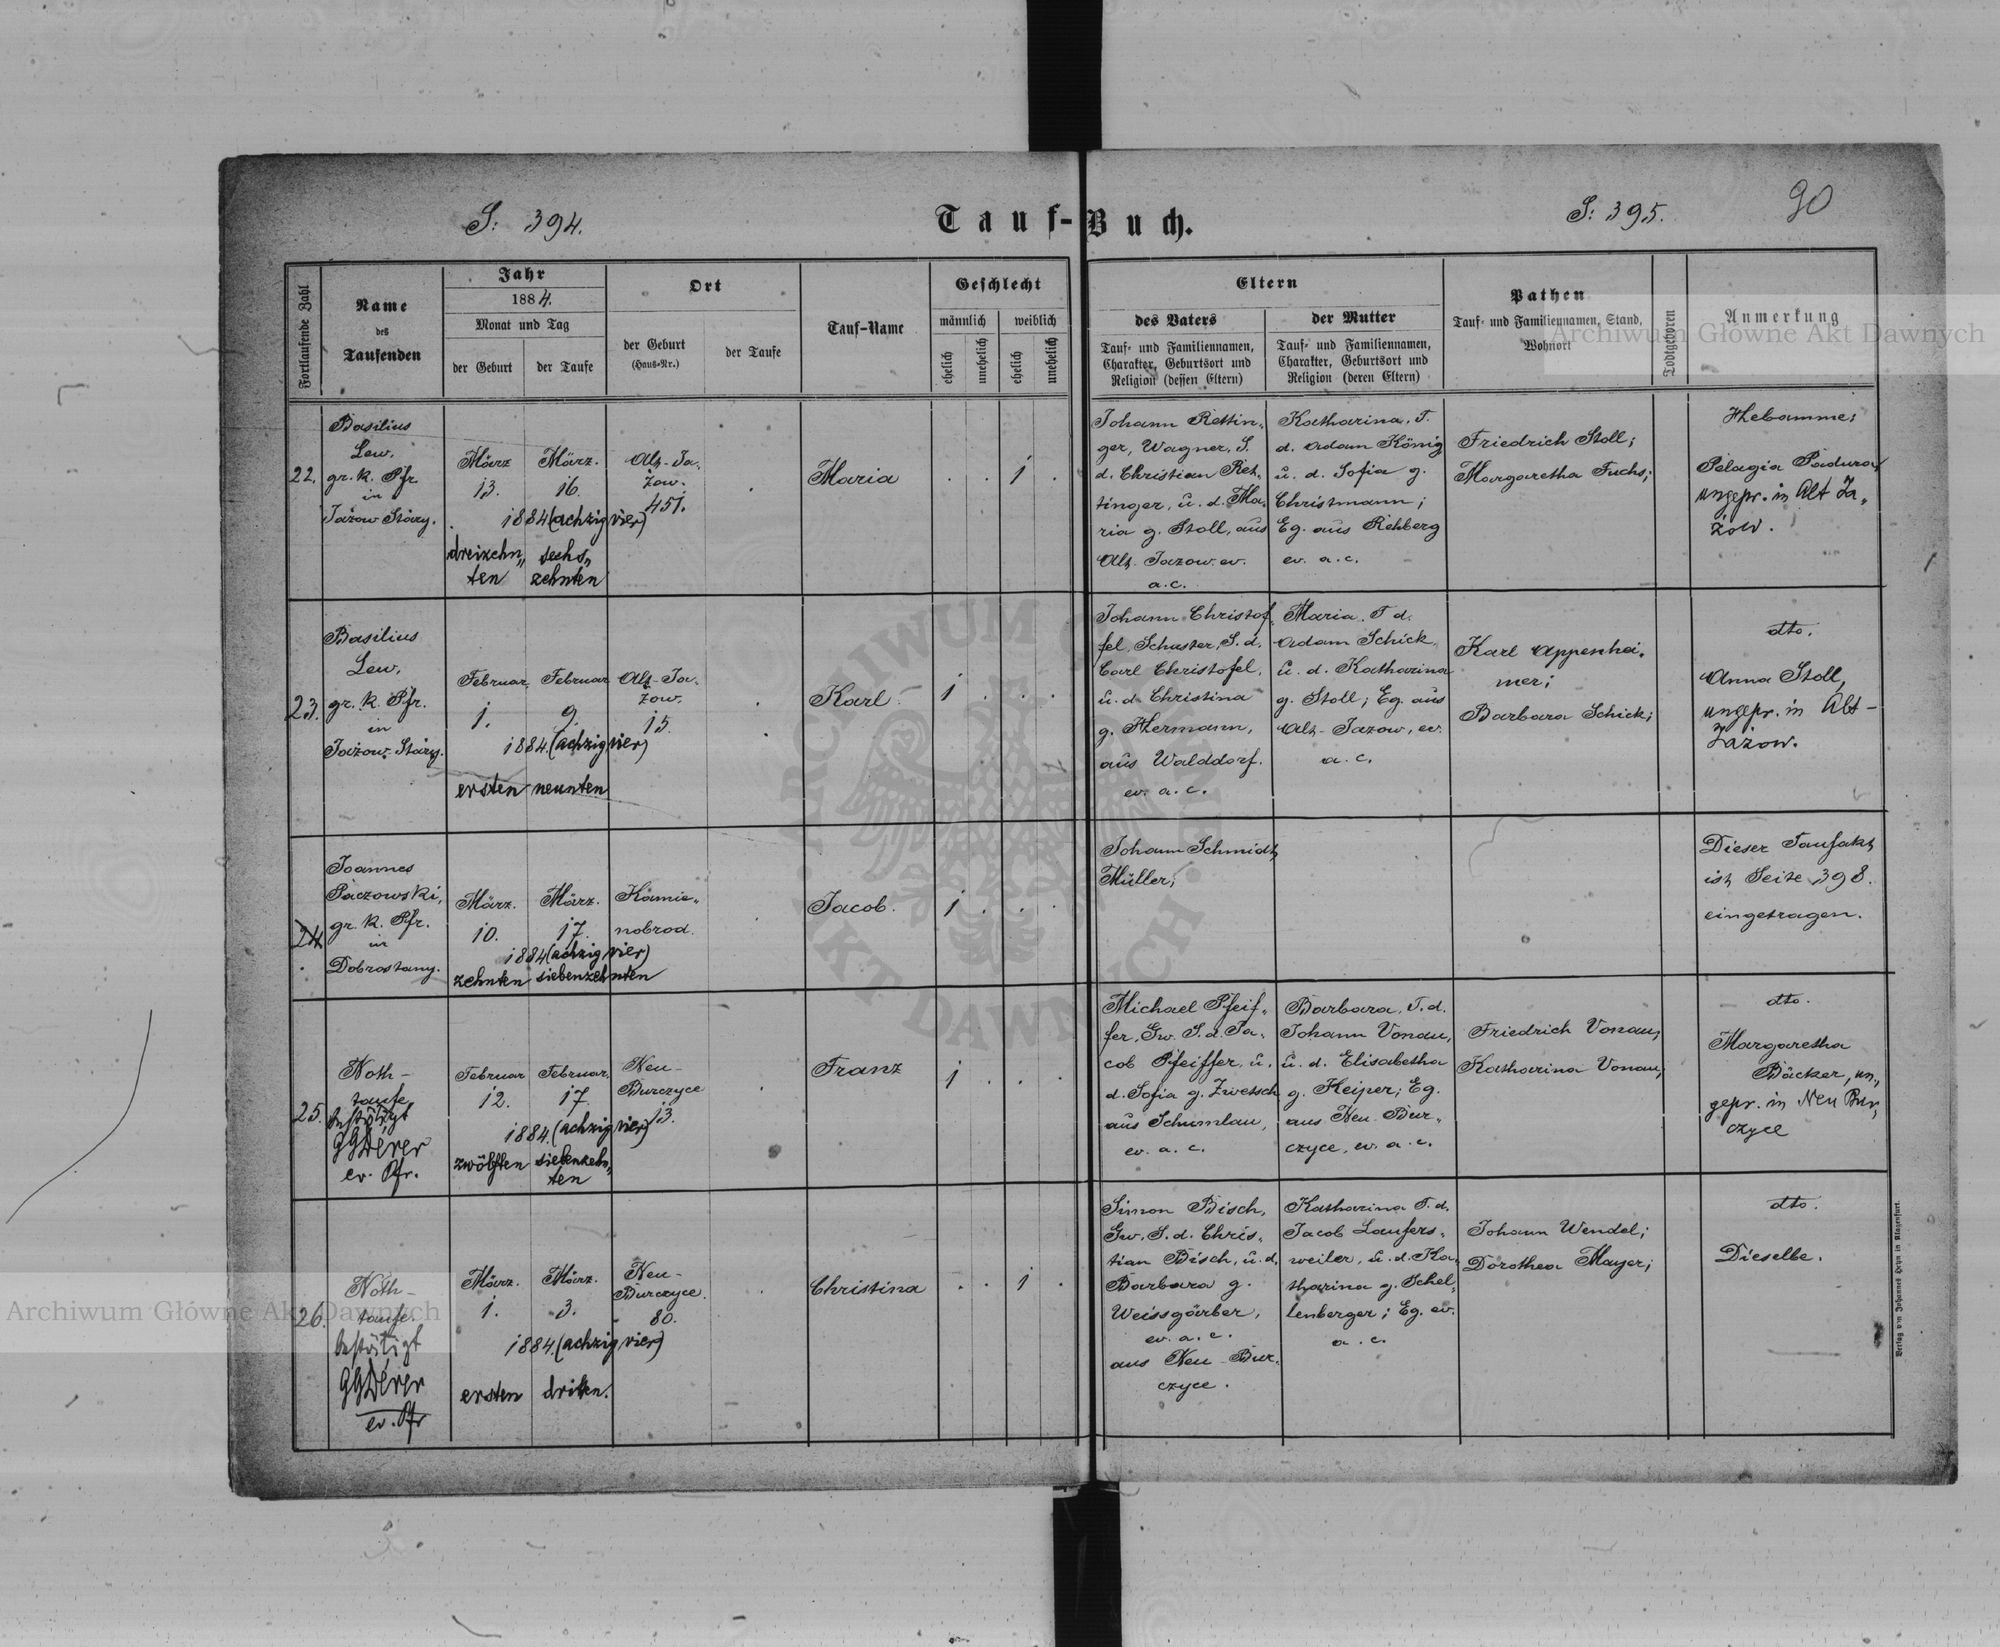 S: 394.
Tauf-Buch.
S: 395.
90
Fortlaufende Zahl
Name
des
Taufenden
Jahr
1884.
Monat und Tag
der Geburt
der Taufe
Ort
der Geburt
(Haus-Nr.)
der Taufe
Tauf-Name
Geschlecht
männlich
weiblich
ehelich
unehelich
ehelich
unehelich
Eltern
des Vaters
Tauf- und Familiennamen,
Charakter, Geburtsort und
Religion (dessen Eltern)
der Mutter
Tauf- und Familiennamen,
Charakter, Geburtsort und
Religion (deren Eltern)
Pathen
Tauf- und Familiennamen, Stand,
Wohnort
Todtgeboren
Anmerkung
22.
Basilius
Lew,
gr. k. Pfr.
in
Jażow Stáry.
März
13.
März.
16.
1884 (achzig vier)
dreizehn„
ten
sechs„
zehnten
Alt-Ja„
żow.
451.
Maria
. . 1 .
Johann Rettin„
ger, Wagner, S.
d. Christian Ret„
tinger, u. d. Ma„
ria g. Stoll, aus
Alt-Jazow. ev.
a. c.
Katharina, T.
d. Adam König
u. d. Sofia g.
Christmann;
Eg. aus Rehberg
ev. a. c.
Friedrich Stoll;
Margaretha Fuchs;
Hebamme:
Pelagia Padura,
ungepr. in Alt Ja„
żow.
23.
Basilius
Lew,
gr. k. Pfr.
in
Jażow. Stáry.
Februar.
1.
Februar
9.
1884. (achzig vier)
ersten
neunten
Alt-Ja„
żow.
15.
Karl
1 . . .
Johann Christof„
fel, Schuster, S. d.
Carl Christofel,
u. d. Christina
g. Hermann,
aus Walddorf.
ev. a. c.
Maria, T. d.
Adam Schick
u. d. Katharina
g. Stoll; Eg. aus
Alt-Jazow, ev.
a. c.
Karl Appenhei„
mer;
Barbara Schick;
dto.
Anna Stoll,
ungepr. in Alt-
Jażow.
24
Joannes
Paczowski,
gr. k. Pfr.
in
Dobrostany.
März.
10.
März.
17.
1884 (achzig vier)
zehnten
siebenzehnten
Kamie„
nobrod.
Jacob.
1 . . .
Johann Schmidt,
Müller;
Dieser Taufakt
ist Seite 398.
eingetragen.
25.
Noth-
taufe
bestätigt
GGDerer
ev. Pfr.
Februar
12.
Februar.
17.
1884. (achzig vier)
zwölften
siebenzehn„
ten
Neu-
Burczyce
13.
Franz
1 . . .
Michael Pfeif„
fer, Gw. S. d. Ja„
cob Pfeiffer, u.
d. Sofia g. Zwetsch
aus Schumlau,
ev. a. c.
Barbara, T. d.
Johann Vonau,
u. d. Elisabetha
g. Keiper; Eg.
aus Neu-Bur„
czyce, ev. a. c.
Friedrich Vonau;
Katharina Vonau;
dto.
Margaretha
Bäcker, un„
gepr. in Neu Bur„
czyce
26.
Noth-
taufe.
bestätigt
GGDerer
ev. Pfr
März.
1.
März.
3.
1884. (achzig vier)
ersten
driten.
Neu-
Burczyce.
80.
Christina
. . 1 .
Simon Bisch,
Gw. S. d. Chris„
tian Bisch, u. d.
Barbara g.
Weissgärber,
ev. a. c.
aus Neu-Bur„
czyce.
Katharina T. d.
Jacob Laufers„
weiler, u. d. Ka„
tharina g. Schel„
lenberger; Eg. ev.
a. c.
Johann Wendel;
Dorothea Mayer;
dto.
Dieselbe.
Verlag von Johannes Heyn in Klagenfurt.
Archiwum Główne Akt Dawnych
Archiwum Główne Akt Dawnych
ARCHIWUM
AKT DAWNYCH